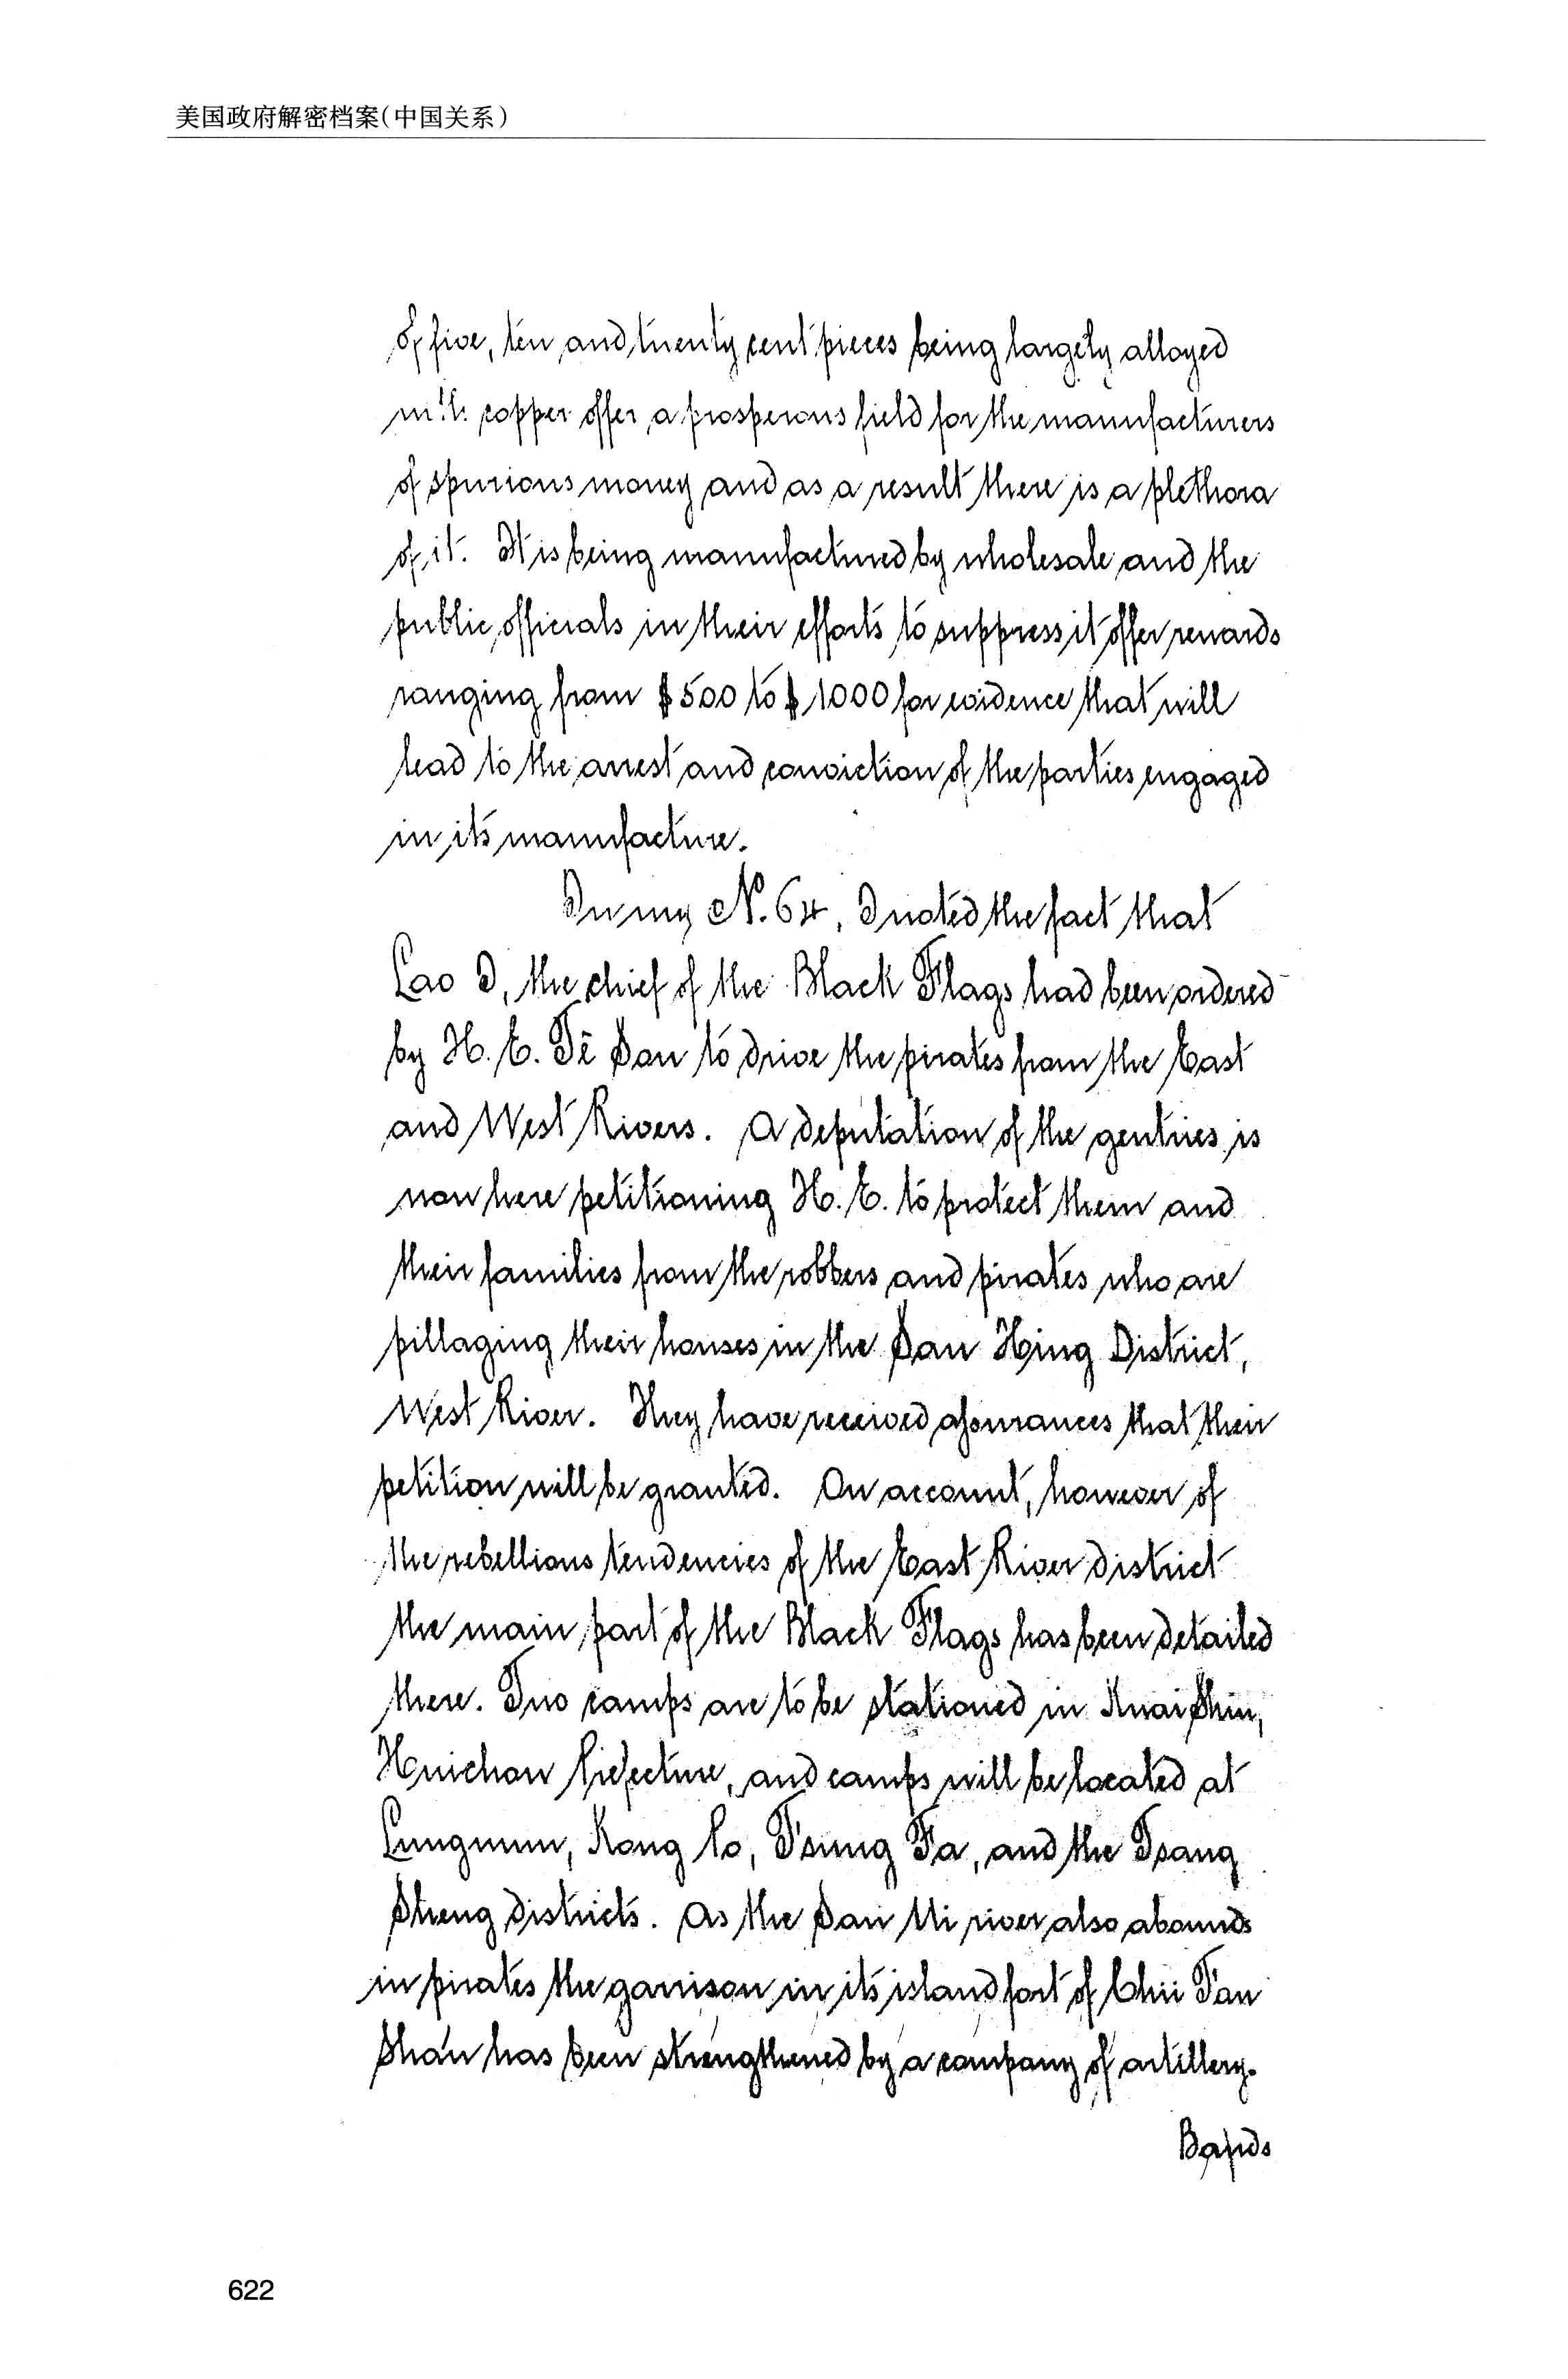 美国政府解密档案(中国关系)
of five, ten and twenty cent pieces being largely alloyed
with copper offer a prosperous field for the manufacturers
of spurious money and as a result there is a plethora
of it. It is being manufactured by wholesale and the
public officials in their efforts to suppress it offer rewards
ranging from $500 to $1000 for evidence that will
lead to the arrest and conviction of the parties engaged
in its manufacture.
In my No. 64, I noted the fact that
Lao I, the chief of the Black Flags had been ordered
by H. E. Tê Sau to drive the pirates from the East
and West Rivers. A deputation of the gentries is
now here petitioning H. E. to protect them and
their families from the robbers and pirates who are
pillaging their houses in the San Hing District,
West River. They have received assurances that their
petition will be granted. On account, however of
the rebellious tendencies of the East River district
the main part of the Black Flags has been detailed
there. Two camps are to be stationed in Kwai Shin,
Huichow Prefecture, and camps will be located at
Lungmun, Kong Po, Tsung Fa, and the Tsang
Sheng districts. As the San Ui river also abounds
in pirates the garrison in its island fort of Chü Tau
Shan has been strengthened by a company of artillery.
Bands
622